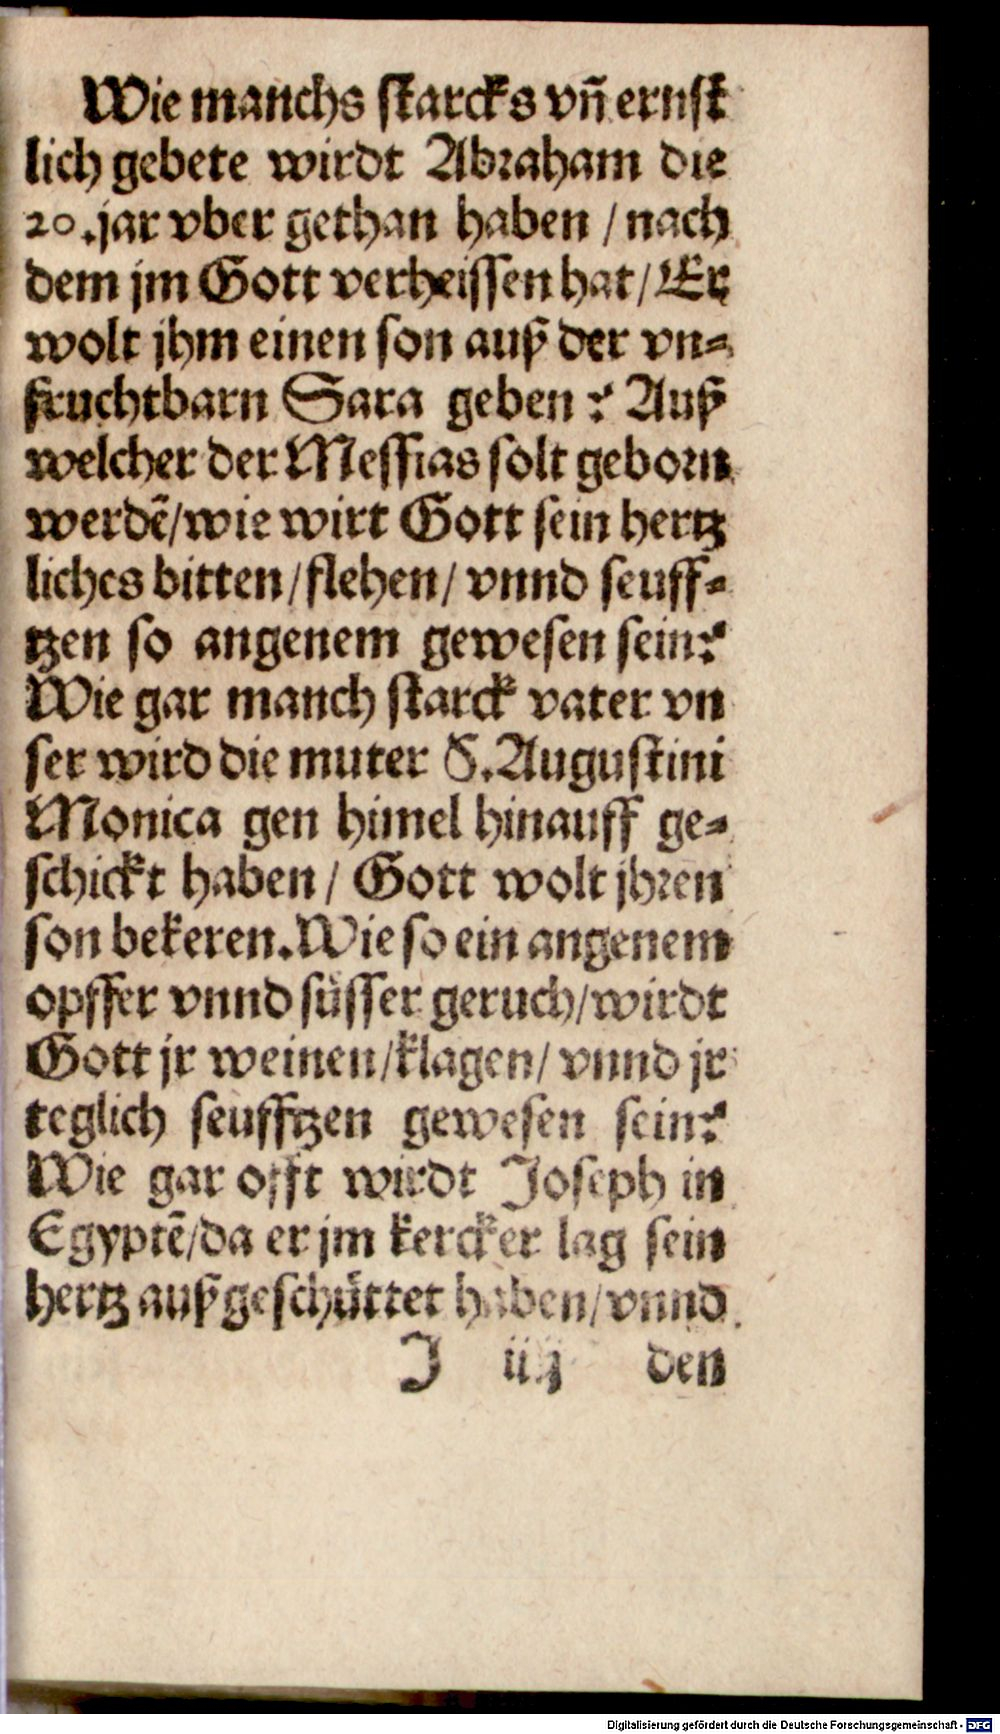 Wie manchs starcks vñ ernst
lich gebete wirdt Abraham die
20.jar vber gethan haben / nach
dem jm Gott verheissen hat / Er
wolt jhm einen son auß der vn=
fruchtbarn Sara geben? Auß
welcher der Messias solt geborn
werdẽ/wie wirt Gott sein hertz
liches bitten/flehen/ vnnd seuff=
tzen so angenem gewesen sein?
Wie gar manch starck vater vn
ser wird die muter S.Augustini
Monica gen himel hinauff ge=
schickt haben/ Gott wolt jhren
son bekeren.Wie so ein angenem
opffer vnnd süsser geruch/wirdt
Gott jr weinen/klagen/ vnnd jr
teglich seufftzen gewesen sein?
Wie gar offt wirdt Joseph in
Egyptẽ/da er jm kercker lag sein
hertz außgeschüttet haben/vnnd
J iiij den
Digitalisierung gefördert durch die Deutsche Forschungsgemeinschaft - DFG